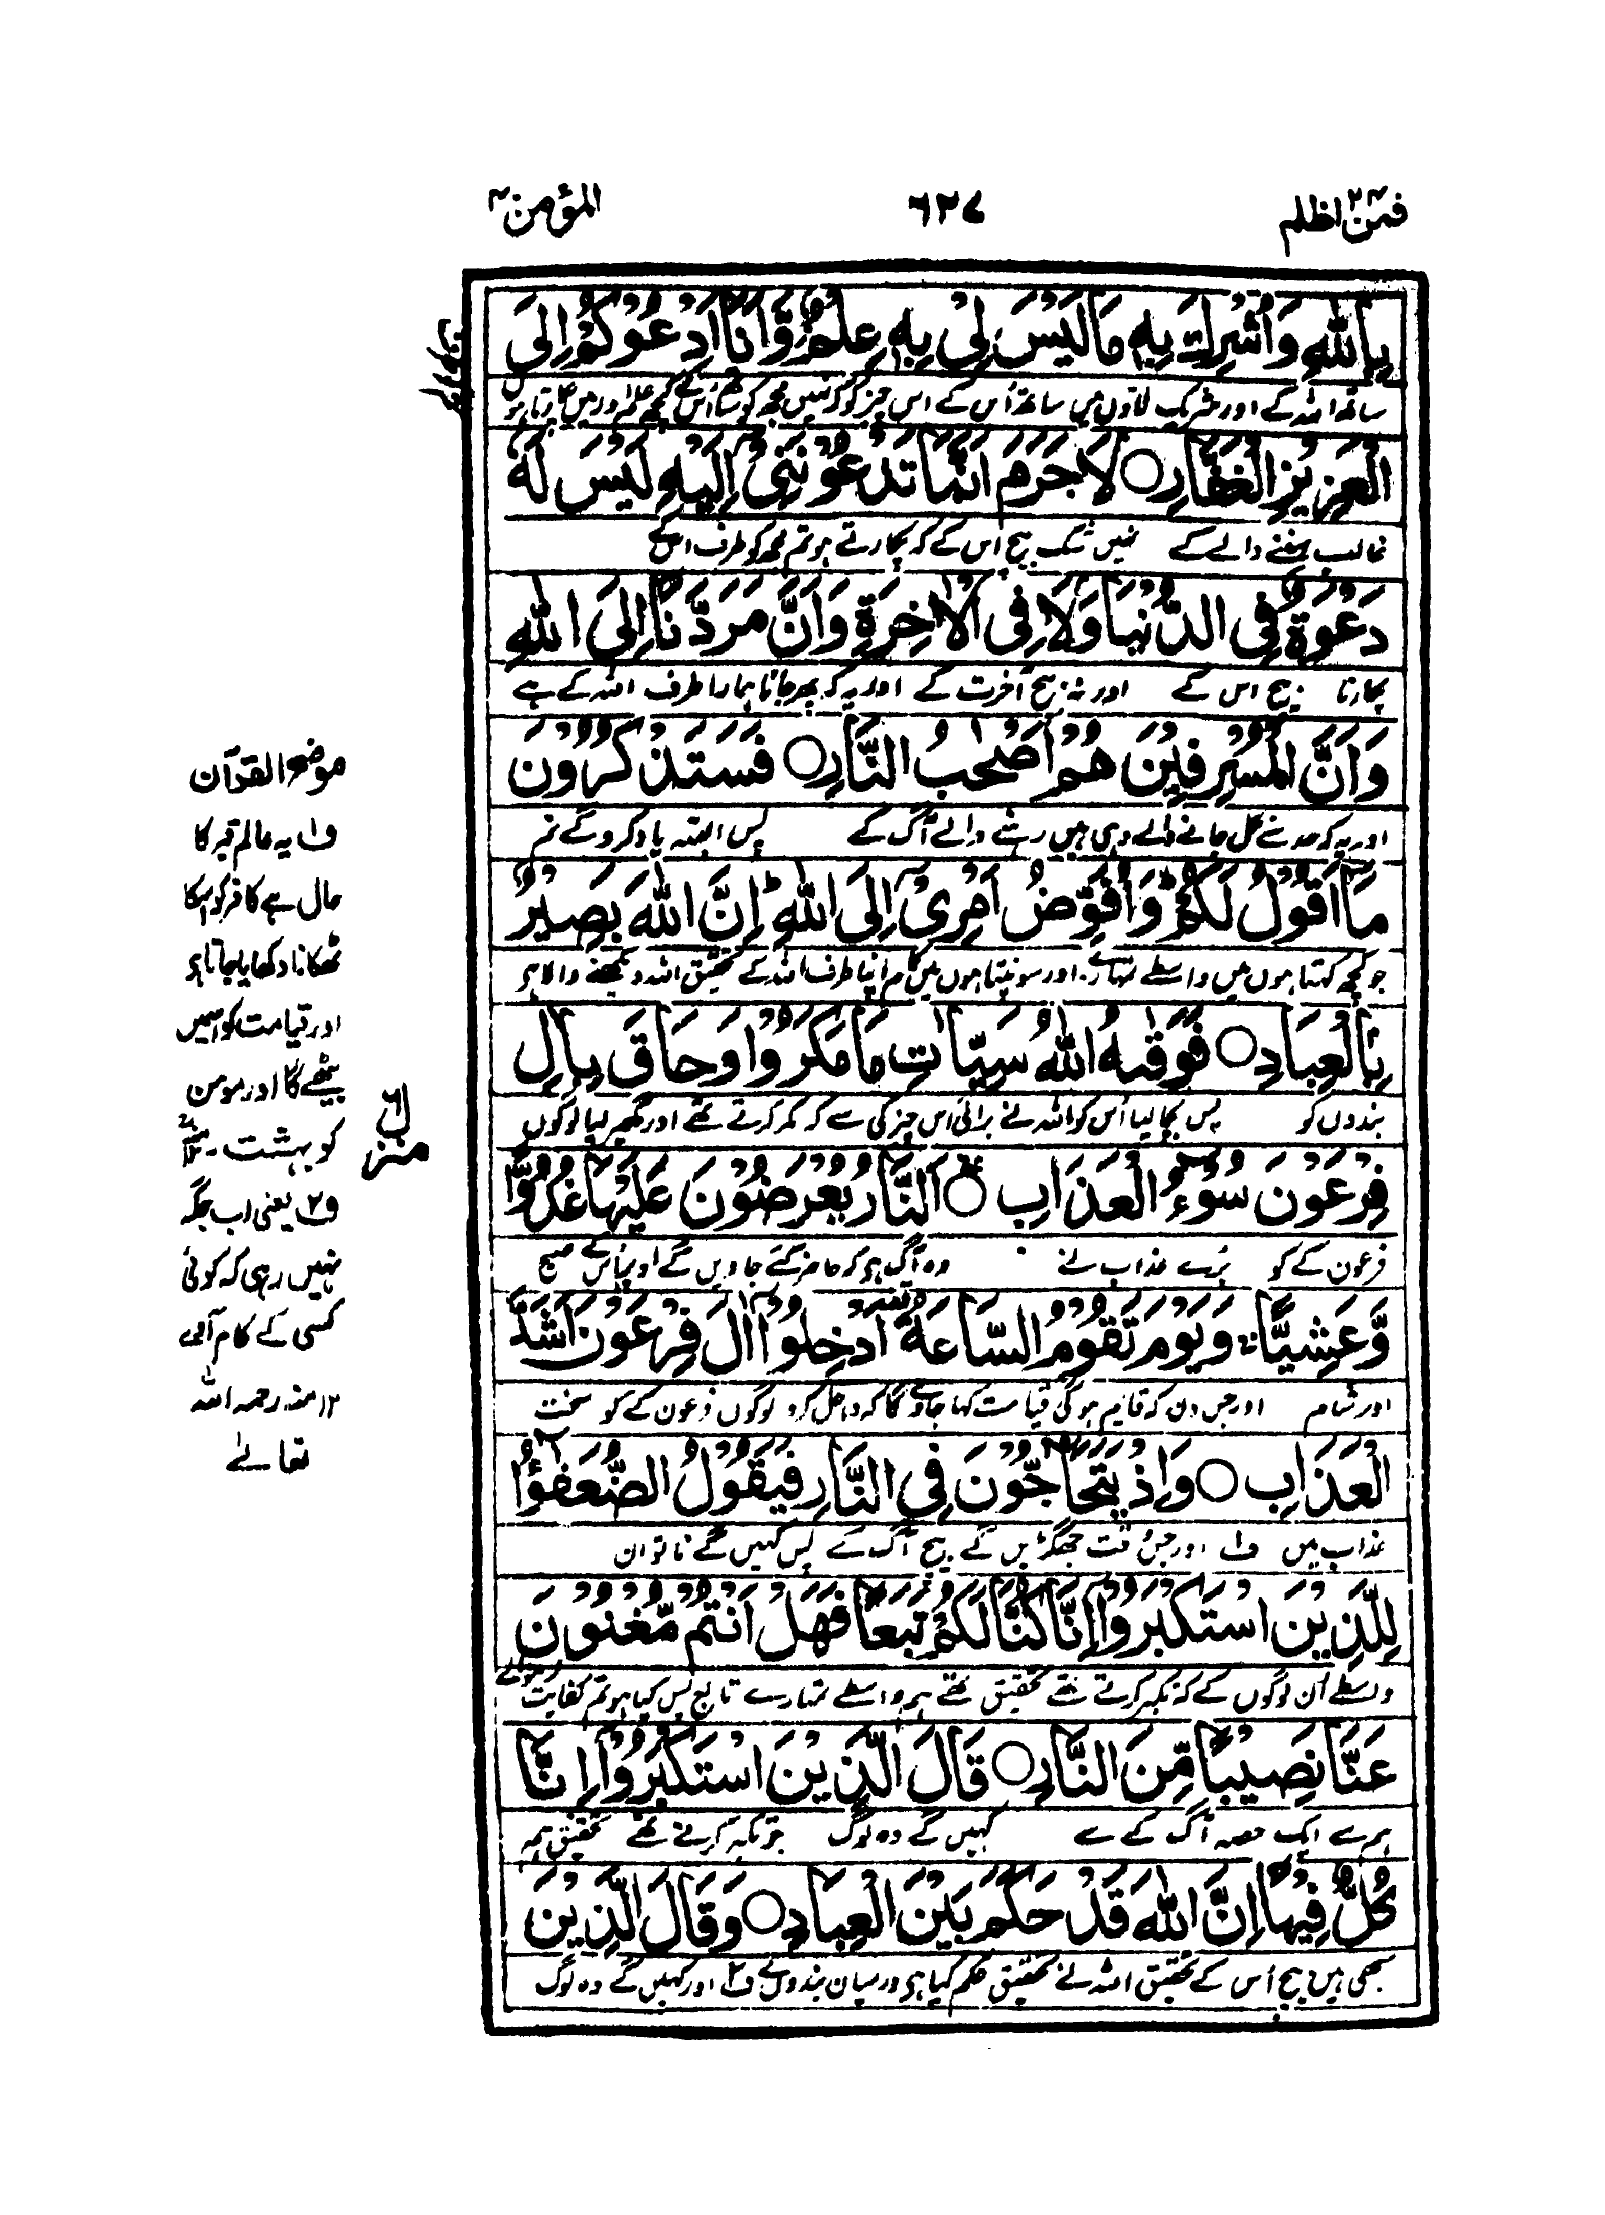 فمن اظلم ٢٤
٦٢٧
المؤمن ٤٠
بِاللّٰهِ وَاُشْرِكَ بِهٖ مَا لَيْسَ لِيْ بِهٖ عِلْمٌ وَّاَنَا اَدْعُوْكُمْ اِلَى
ساتھ اللہ کے اور شریک لاؤں میں ساتھ اُس کے اس چیز کو کہ نہیں مجھ کو ساتھ اُس کے کچھ علم اور میں پکارتا ہوں
الْعَزِيْزِ الْغَفَّارِ ○ لَا جَرَمَ اَنَّمَا تَدْعُوْنَنِيْٓ اِلَيْهِ لَيْسَ لَهٗ
غالب بخشنے والے کے نہیں شک بیچ اس کے کہ پکارتے ہو تم مجھ کو طرف اسکے
دَعْوَةٌ فِي الدُّنْيَا وَلَا فِي الْاٰخِرَةِ وَاَنَّ مَرَدَّنَآ اِلَى اللّٰهِ
پکارنا بیچ اس کے اور نہ بیچ آخرت کے اور یہ کہ پھر جانا ہمارا طرف اللہ کے ہے
وَاَنَّ الْمُسْرِفِيْنَ هُمْ اَصْحٰبُ النَّارِ ○ فَسَتَذْكُرُوْنَ
اور یہ کہ حد سے نکل جانے والے وہی ہیں رہنے والے آگ کے پس البتہ یاد کرو گے تم
مَآ اَقُوْلُ لَكُمْ ؕ وَاُفَوِّضُ اَمْرِيْٓ اِلَى اللّٰهِ ؕ اِنَّ اللّٰهَ بَصِيْرٌۢ
جو کچھ کہتا ہوں میں واسطے تمہارے اور سونپتا ہوں میں کام اپنا طرف اللہ کے تحقیق اللہ دیکھنے والا ہے
بِالْعِبَادِ ○ فَوَقٰىهُ اللّٰهُ سَيِّاٰتِ مَا مَكَرُوْا وَحَاقَ بِاٰلِ
بندوں کو پس بچا لیا اُس کو اللہ نے برائی اس چیز کی سے کہ مکر کرتے تھے اور گھیر لیا لوگوں
فِرْعَوْنَ سُوْٓءُ الْعَذَابِ ○ اَلنَّارُ يُعْرَضُوْنَ عَلَيْهَا غُدُوًّا
فرعون کے کو بُرے عذاب نے وہ آگ ہے کہ حاضر کئے جاویں گے اوپر اس کے صبح
وَّعَشِيًّا ۚ وَيَوْمَ تَقُوْمُ السَّاعَةُ ۫ اَدْخِلُوْٓا اٰلَ فِرْعَوْنَ اَشَدَّ
اور شام اور جس دن کہ قایم ہو گی قیامت کہا جاوے گا کہ داخل کرو لوگوں فرعون کے کو سخت
الْعَذَابِ ○ وَاِذْ يَتَحَآجُّوْنَ فِي النَّارِ فَيَقُوْلُ الضُّعَفٰٓؤُا
عذاب میں ف١ اور جس وقت جھگڑیں گے بیچ آگ کے پس کہیں گے ناتوان
لِلَّذِيْنَ اسْتَكْبَرُوْٓا اِنَّا كُنَّا لَكُمْ تَبَعًا فَهَلْ اَنْتُمْ مُّغْنُوْنَ
واسطے اُن لوگوں کے کہ تکبر کرتے تھے تحقیق تھے ہم واسطے تمہارے تابع پس کیا ہو تم کفایت
عَنَّا نَصِيْبًا مِّنَ النَّارِ ○ قَالَ الَّذِيْنَ اسْتَكْبَرُوْٓا اِنَّا
ہم سے ایک حصہ آگ کے سے کہیں گے وہ لوگ جو تکبر کرتے تھے تحقیق ہم
كُلٌّ فِيْهَآ اِنَّ اللّٰهَ قَدْ حَكَمَ بَيْنَ الْعِبَادِ ○ وَقَالَ الَّذِيْنَ
سبھی ہیں بیچ اُس کے تحقیق اللہ نے تحقیق حکم کیا ہے درمیان بندوں کے ف٢ اور کہیں گے وہ لوگ
موضح القرآن
ف١ یہ عالم قبر کا
حال ہے کافر کو اسکا
ٹھکانا دکھایا جاتا ہے
اور قیامت کو اسمیں
بیٹھے گا اور مومن
کو بہشت - ١٢ منہ رح
ف٢ یعنی اب جگہ
نہیں رہی کہ کوئی
کسی کے کام آوے
١٢ منہ رحمہ اللہ
تعالےٰ
منزل ٦